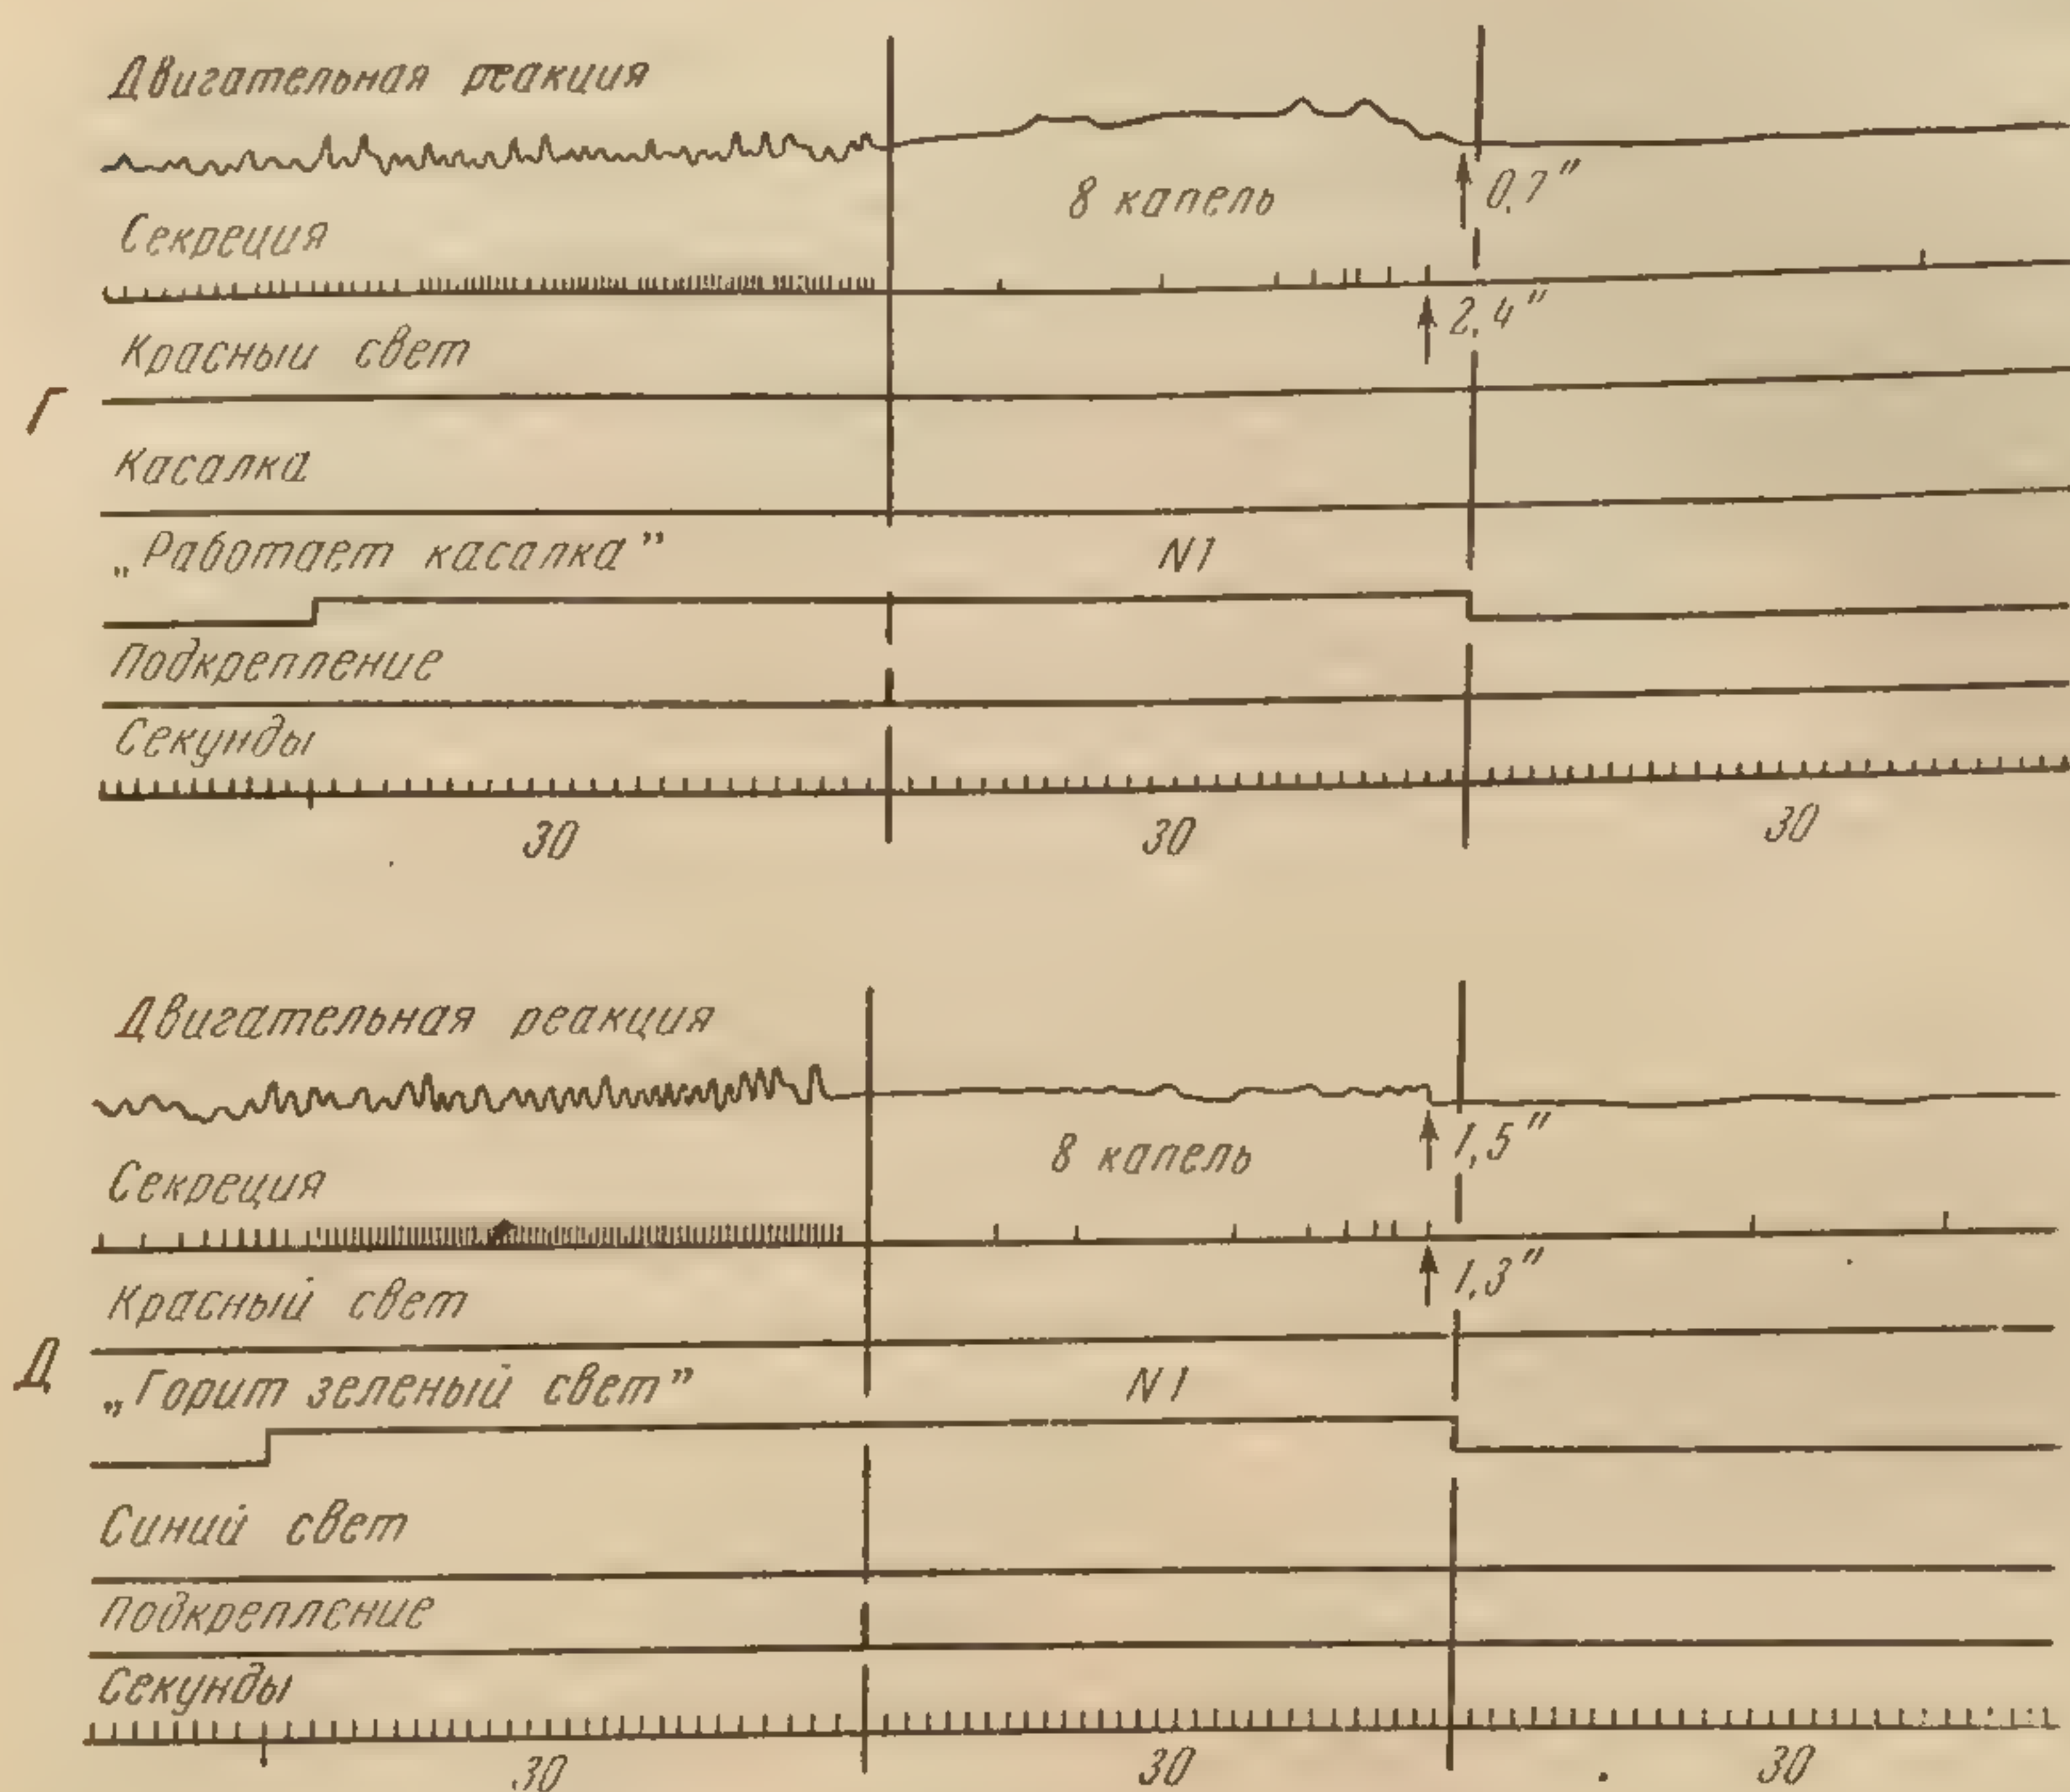 Двигательная реакция
8 капель
0,7"
Секреция
2,4"
Красный свет
Г
Касалка
„Работает касалка”
N1
Подкрепление
Секунды
30
30
30
Двигательная реакция
8 капель
1,5"
Секреция
1,3"
Красный свет
Д
„Горит зеленый свет”
N1
Синий свет
Подкрепление
Секунды
30
30
30